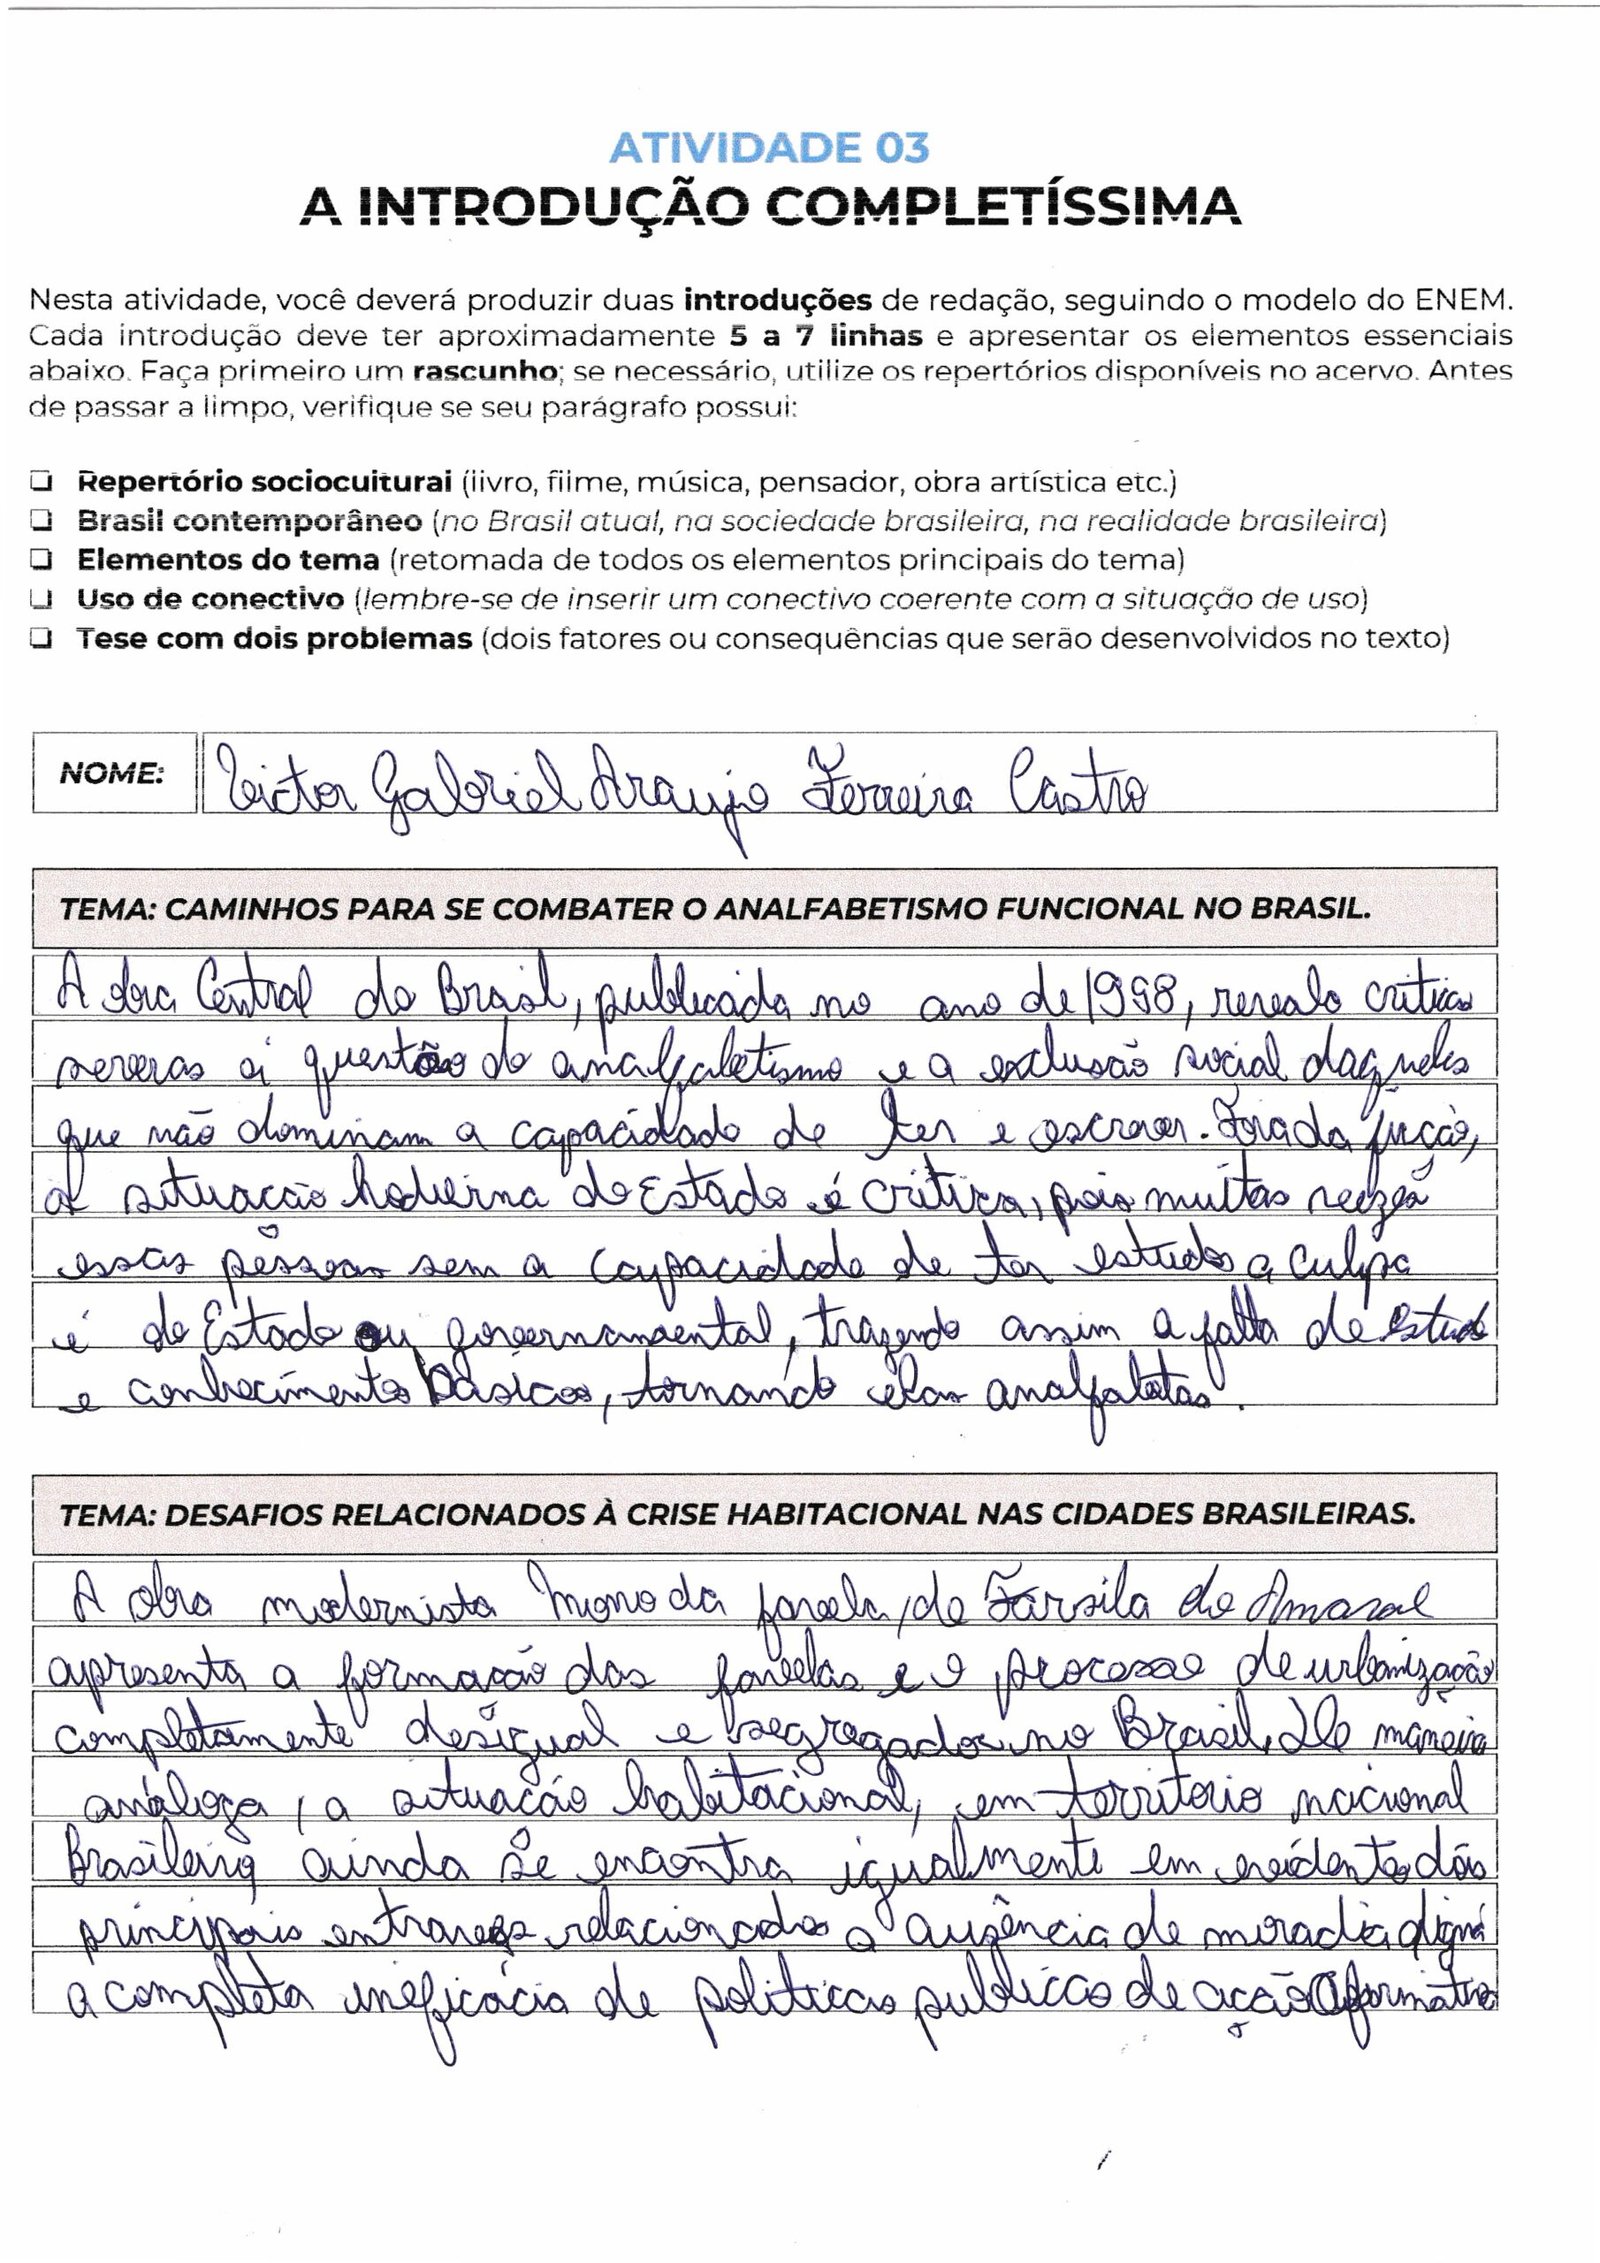 ATIVIDADE 03
A INTRODUÇÃO COMPLETÍSSIMA
Nesta atividade, você deverá produzir duas introduções de redação, seguindo o modelo do ENEM.
Cada introdução deve ter aproximadamente 5 a 7 linhas e apresentar os elementos essenciais
abaixo. Faça primeiro um rascunho; se necessário, utilize os repertórios disponíveis no acervo. Antes
de passar a limpo, verifique se seu parágrafo possui:
Repertório sociocultural (livro, filme, música, pensador, obra artística etc.)
Brasil contemporâneo (no Brasil atual, na sociedade brasileira, na realidade brasileira)
Elementos do tema (retomada de todos os elementos principais do tema)
Uso de conectivo (lembre-se de inserir um conectivo coerente com a situação de uso)
Tese com dois problemas (dois fatores ou consequências que serão desenvolvidos no texto)
NOME: Victor Gabriel Araujo Ferreira Castro
TEMA: CAMINHOS PARA SE COMBATER O ANALFABETISMO FUNCIONAL NO BRASIL.
A obra Central do Brasil, publicada no ano de 1998, revela criticas
severas a questão do analfabetismo e a exclusão social daqueles
que não dominam a capacidade de ler e escrever. Fora da ficção,
a situacão hodierna do Estado é critica, pois muitas
essas pessoas sem a capacidade de ter estudo a culpa
é do Estado ou governamental, trazendo assim a falta de estudo
e conhecimentos básicos, tornando elas analfabetas.
TEMA: DESAFIOS RELACIONADOS À CRISE HABITACIONAL NAS CIDADES BRASILEIRAS.
A obra modernista Morro da favela, de Tarsila do Amaral
apresenta a formação das favelas e o processo de urbanização
completamente desigual e segregador no Brasil. De maneira
análoga, a situacão habitacional, em territorio nacional
Brasileiro ainda se encontra igualmente em evidente dois
principais entraves relacionados a ausência de moradia digna
a completa ineficácia de politicas publicas de ação afirmativa